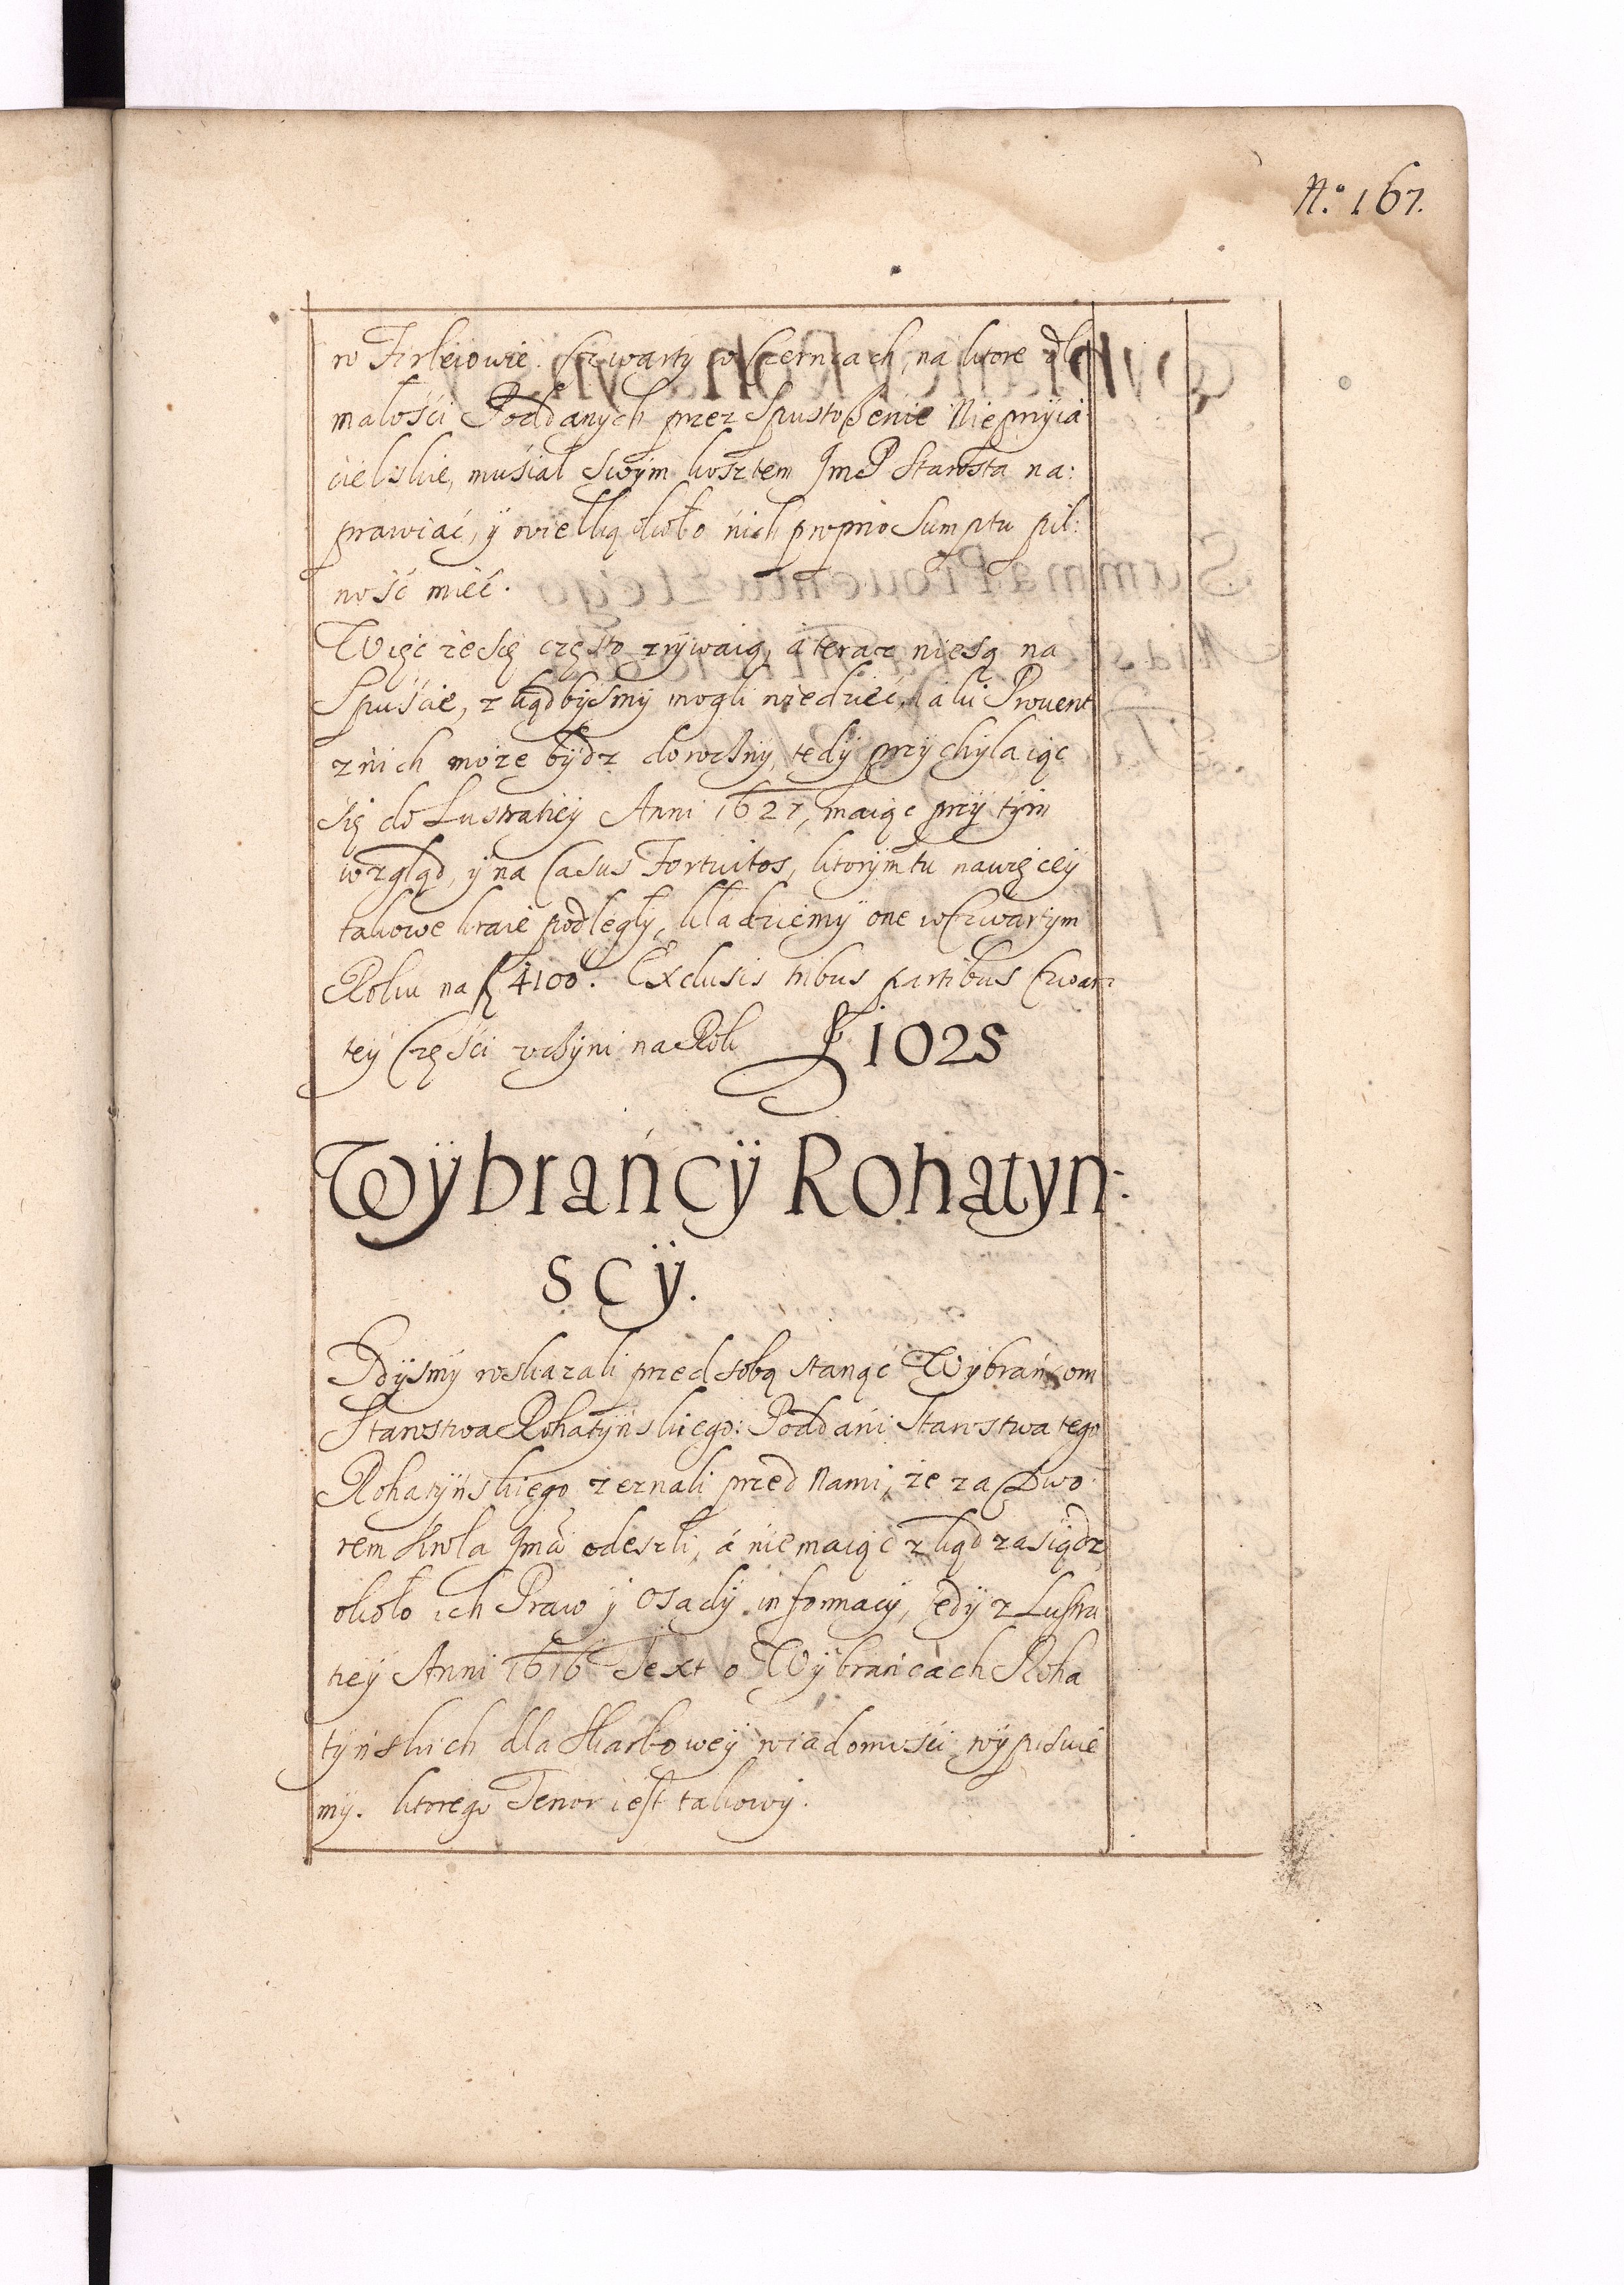 N.° 167.
w Firleiowie. Czwarty w Czerncach, na ktore dla
małości Poddanych przez Spustoßenie Nieprÿia
cielskie, muśiał Swÿm kosztem JmP Starosta na:
prawiać, ÿ wielką około nich proprio Sumptu pil:
ność mieć.
Więc że się często zrÿwaią, á teraz nie są na
Spuśćie, z kądbÿsmÿ mogli wiedzieć, iaki Prouent
z nich może bÿdz dorocznÿ, tedÿ przÿchÿlaiąc
śię do Lustratieÿ Anni 1627, maiąc przÿ tÿm
wzgląd, ÿ na Casus Fortuitos, ktorÿm tu nawięceÿ
takowe kraie podległÿ, kładziemÿ one w Czwartÿm
Roku na f 4100. Exclusis tribus partibus Czwar:
teÿ Częśći vczÿni na Rok f 1025
Wÿbrańcÿ Rohatyn:
scÿ.
Gdÿsmÿ wskazali przed sobą stanąć Wÿbrańcom
Starostwa Rohatÿnskiego: Poddani Starostwa tego
Rohatÿnskiego zeznali przed Nami, że za Dwo:
rem Krola Jmći odeszli, á nie maiąc z kąd zasiądz
około ich Praw ÿ Osadÿ informacÿ, tedÿ z Lustra
tieÿ Anni 1616 Text o Wÿbrańcach Roha
tÿńskich dla Skarboweÿ wiadomośći wÿpisuie
mÿ. ktorego Tenor iest takowÿ.